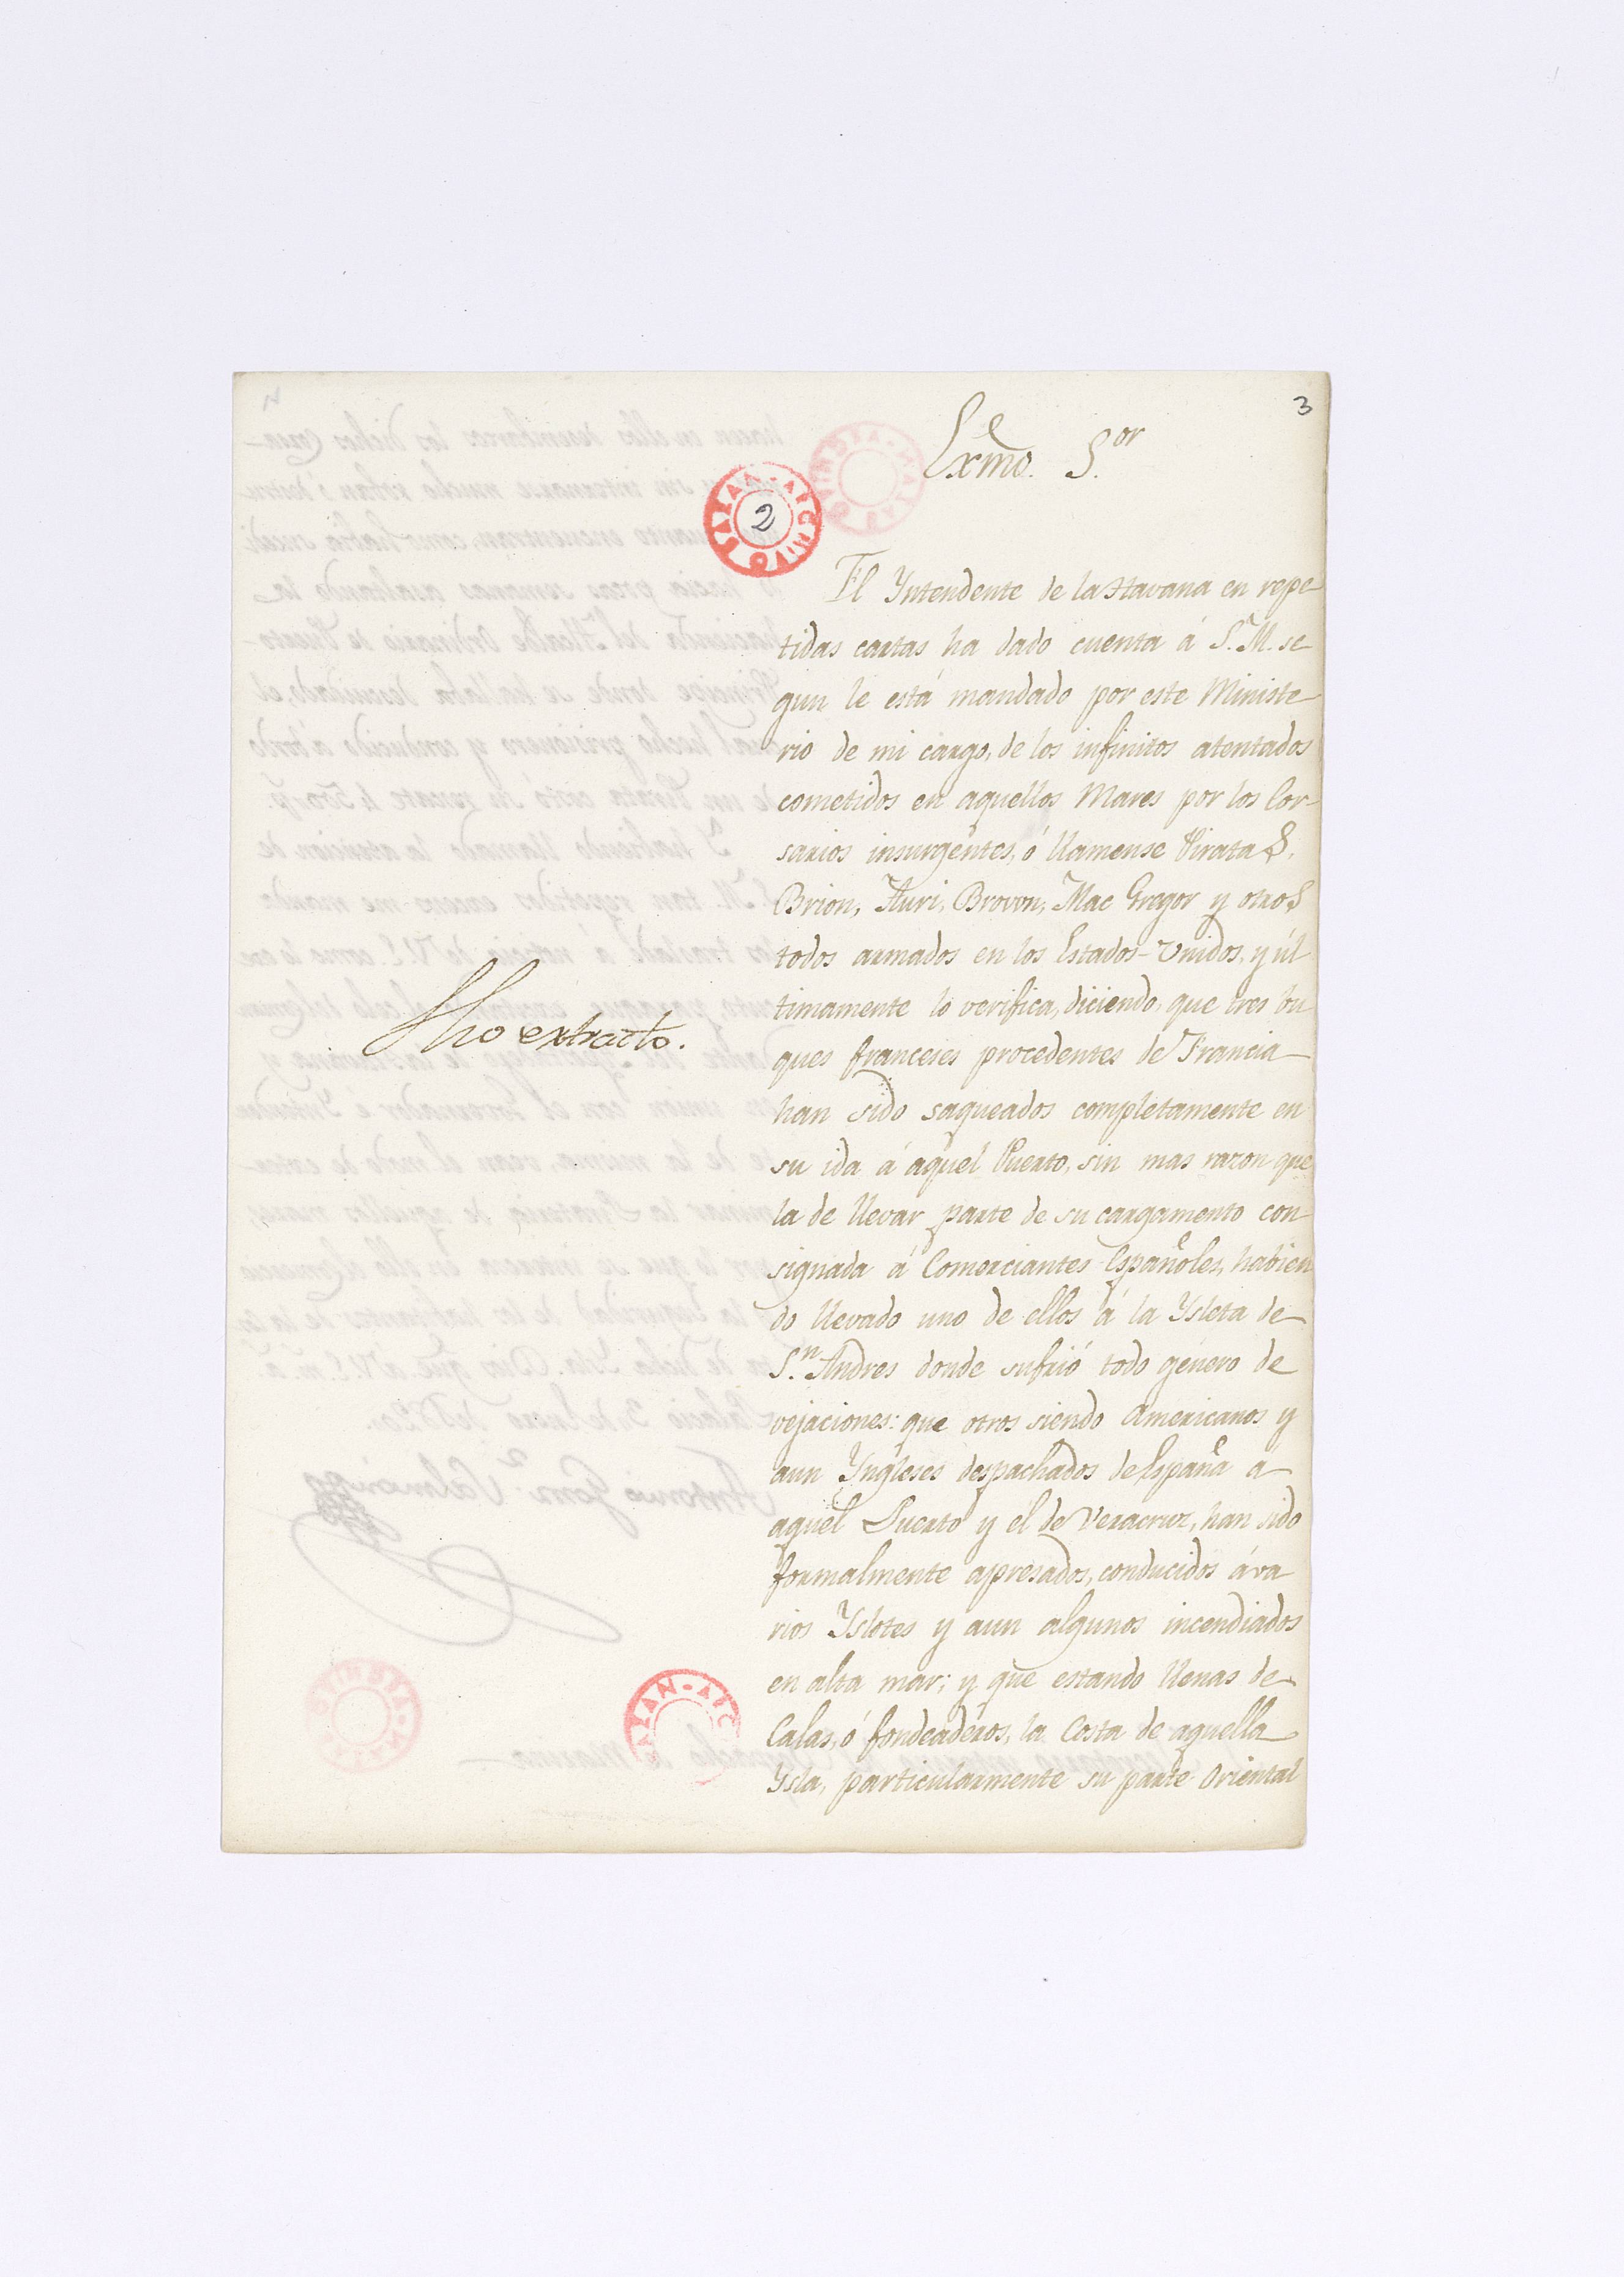 3
Exmo. S.or
2
El Yntendente de la Havana en repe-
tidas cartas ha dado cuenta á S. M. se
gun le está mandado por este Ministe
rio de mi cargo, de los infinitos atentados
cometidos en aquellos Mares por los Cor-
sarios insurgentes, ó llamense Piratas,
Brion, Auri, Brovvn, Mac Gregor y otros
todos armados en los Estados-Unidos, y úl
timamente lo verifica, diciendo, que tres bu
ques franceses procedentes de Francia
han sido saqueados completamente en
su ida á aquel Puerto, sin mas razon que
la de llevar parte de su cargamento con
signada á Comerciantes Españoles, habien
do llevado uno de ellos á la Ysleta de
S.n Andres donde sufrió todo género de
vejaciones: que otros siendo Americanos y
aun Yngleses despachados de España á
aquel Puerto y el de Veracruz, han sido
formalmente apresados, conducidos á va
rios Yslotes y aun algunos incendiados
en alta mar; y que estando llenas de
Calas, ó fondeadéros, la Costa de aquella
Ysla, particularmente su parte Oriental
fho extracto.